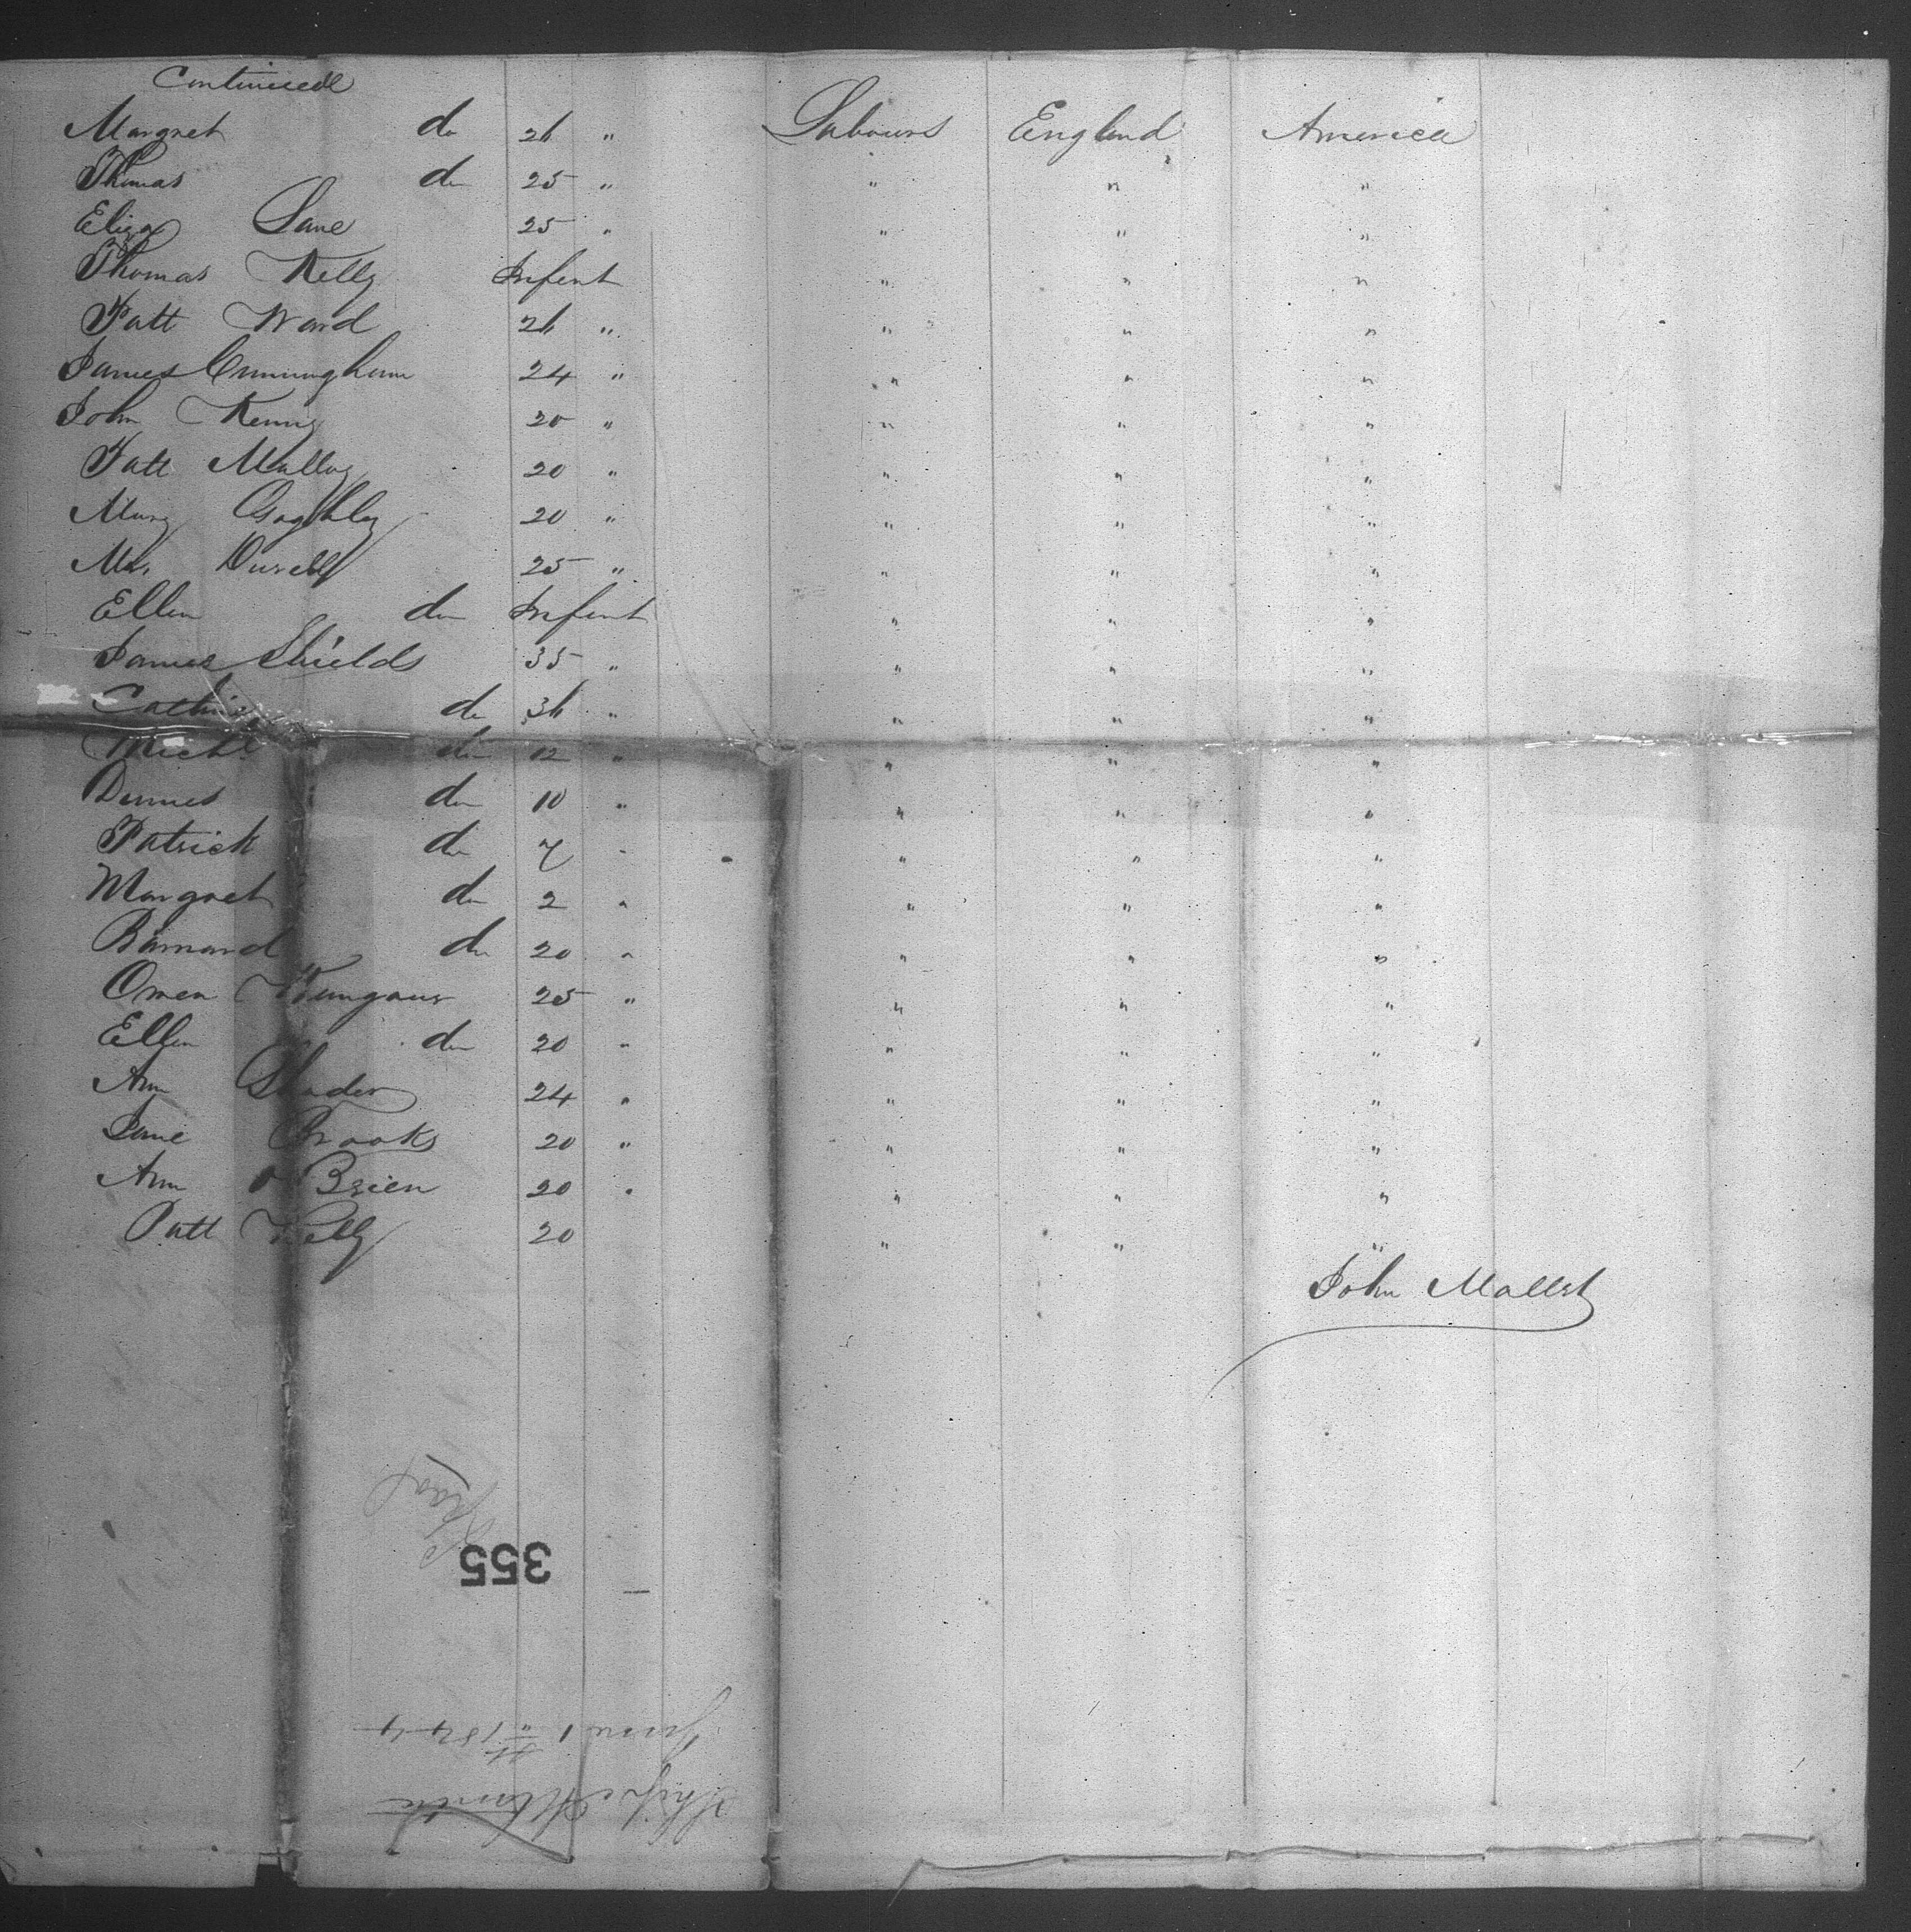 Continued
Margret do 26 " Labours England America
Thomas do 25 " " " "
Eliza Lane 25 " " " "
Thomas Kelly Infent " " "
Patt Ward 26 " " " "
James Cunningham 24 " " " "
John Kenny 20 " " " "
Patt Malloy 20 " " " "
Mary Gaghley 20 " " " "
Mrs Durell 25 " " " "
Ellen do Infent " " "
James Shields 35 " " " "
do 36 " " " "
Michl do 12 " " " "
Dennes do 10 " " " "
Patrick do 7 " " " "
Margret do 2 " " " "
Barnard do 20 " " " "
Owen 25 " " " "
Ellen do 20 " " " "
Ann 24 " " " "
Jane Brooks 20 " " " "
Ann O Brien 20 " " " "
Patt Kelly 20 " " "
John Mallet
355
June 1st 1844
Ship